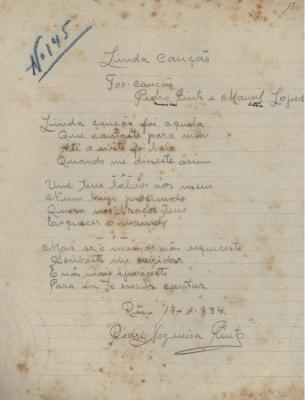 Nº 145
Linda Canção
Fox-canção
Pedro Pinto e Manoel Lopes
Linda canção foi aquela
Que cantaste para mim
Até a noite foi bela
Quando me diseste asim
Une teus labios aos meus
Num beijo profundo
Quero nos braços teus
Esquecer o mundo
Mas se o mundo não esqueceste
me ouvidar
E nós mais
Para eu te ouvir cantar
Rio, 17-1-934
Pedro Nogueira Pinto